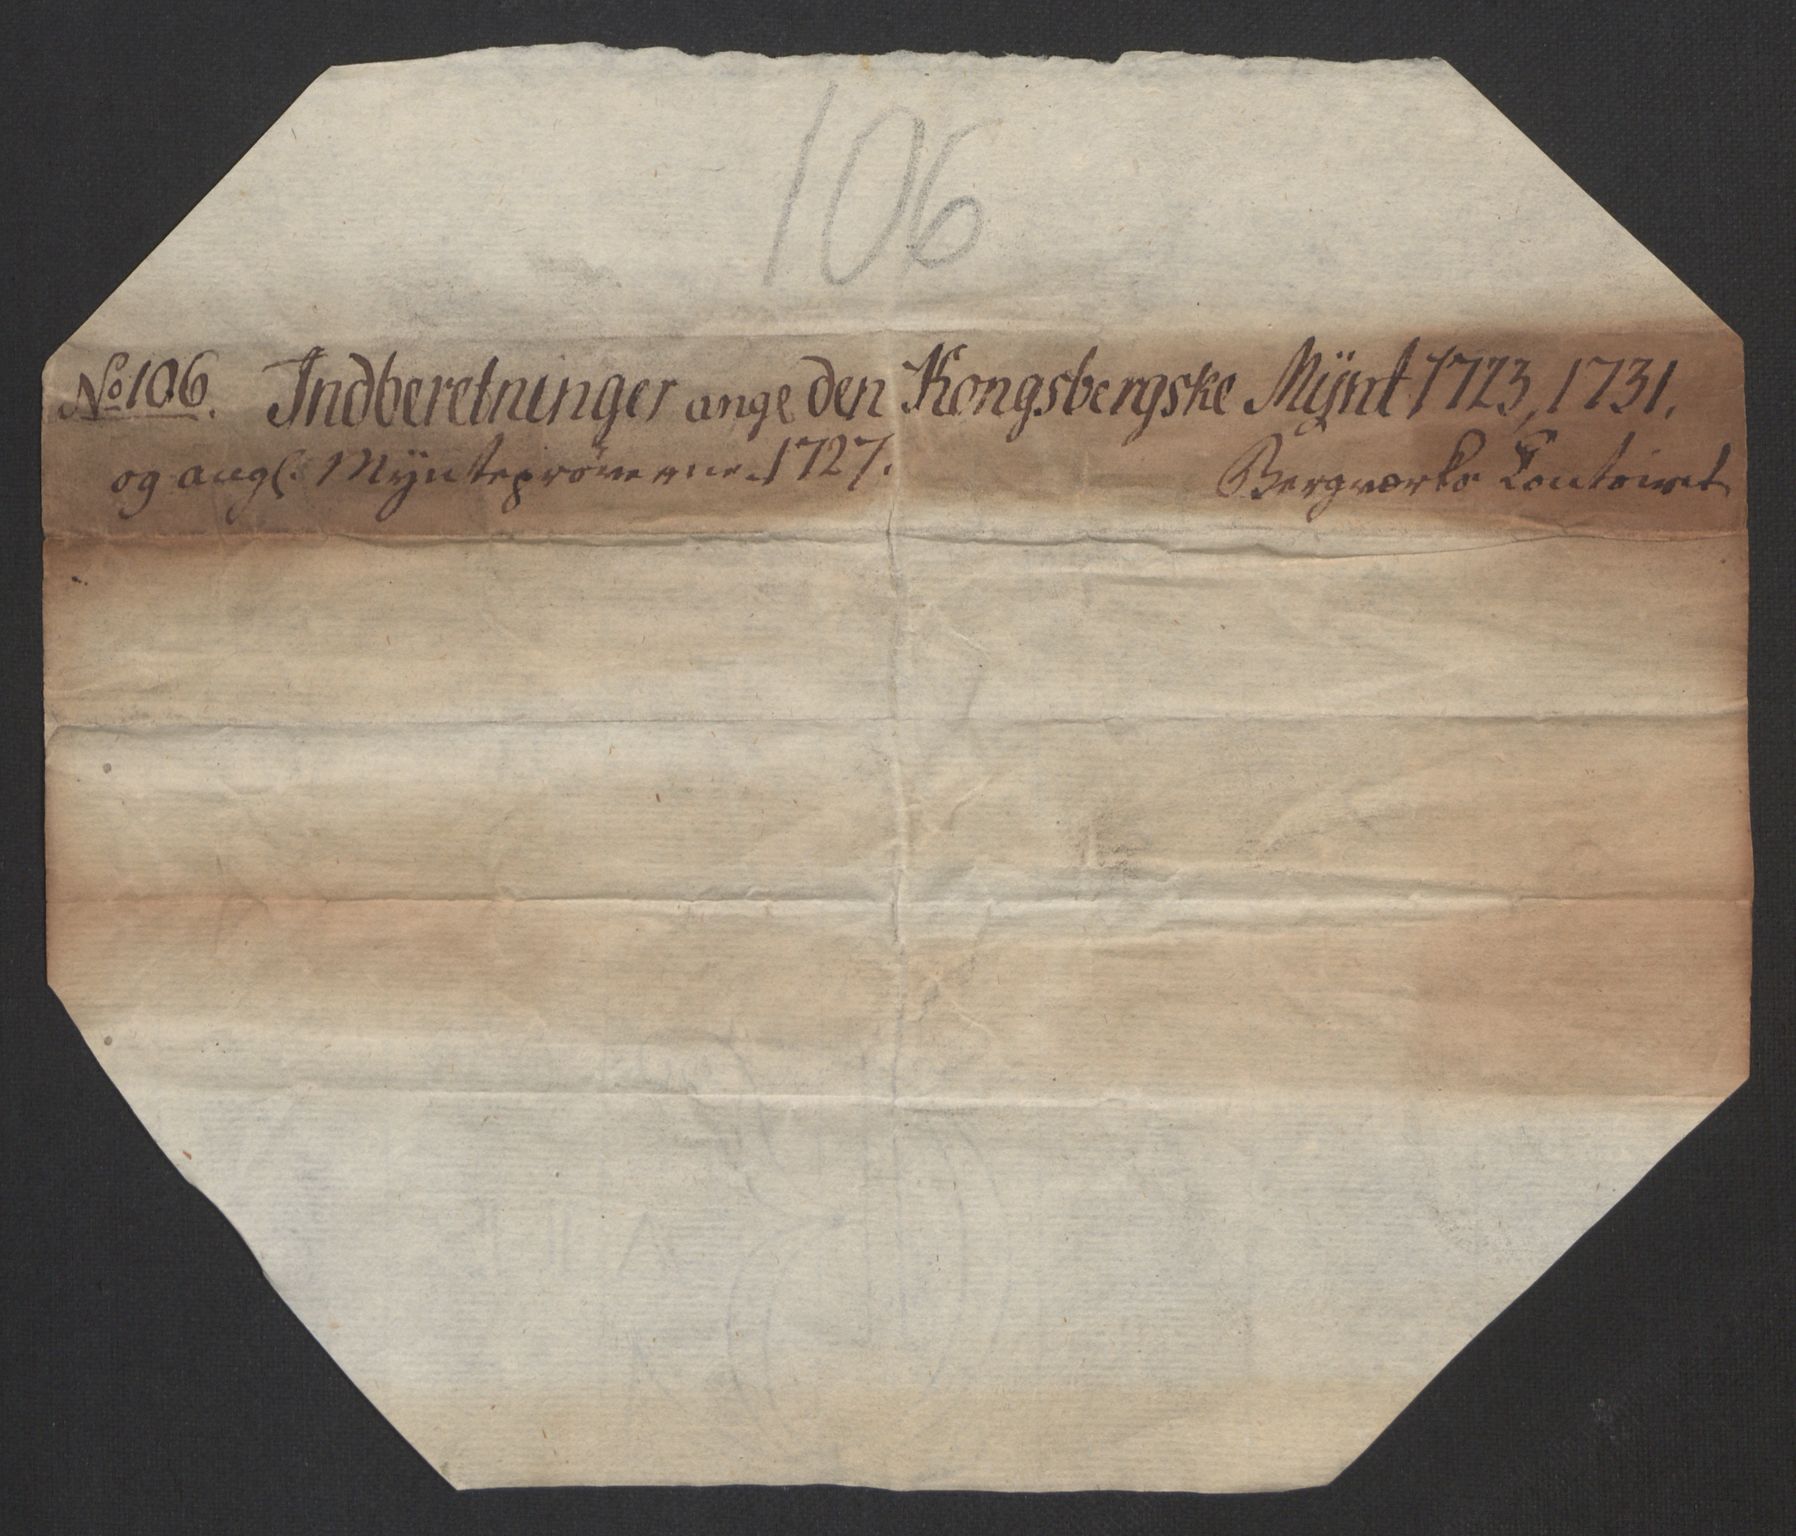 106
No 106. Indberetninger ange den Kongsbergske Mÿnt 1723, 1731.
og angl: Mynteprøverne 1727. Bergværks Contoiret